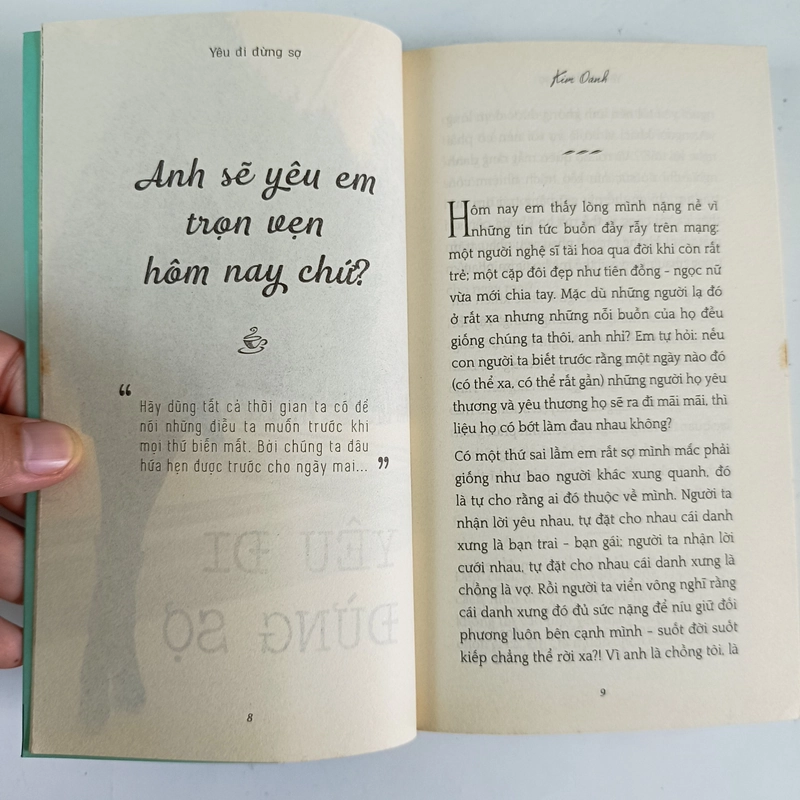 Yêu đi đừng sợ
Anh sẽ yêu em
trọn vẹn
hôm nay chứ?
“ Hãy dùng tất cả thời gian ta có để
nói những điều ta muốn trước khi
mọi thứ biến mất. Bởi chúng ta đâu
hứa hẹn được trước cho ngày mai... ”
YÊU ĐI
ĐỪNG SỢ
8
Kim Oanh
Hôm nay em thấy lòng mình nặng nề vì
những tin tức buồn đầy rẫy trên mạng:
một người nghệ sĩ tài hoa qua đời khi còn rất
trẻ; một cặp đôi đẹp như tiên đồng - ngọc nữ
vừa mới chia tay. Mặc dù những người lạ đó
ở rất xa nhưng những nỗi buồn của họ đều
giống chúng ta thôi, anh nhỉ? Em tự hỏi: nếu
con người ta biết trước rằng một ngày nào đó
(có thể xa, có thể rất gần) những người họ yêu
thương và yêu thương họ sẽ ra đi mãi mãi, thì
liệu họ có bớt làm đau nhau không?
Có một thứ sai lầm em rất sợ mình mắc phải
giống như bao người khác xung quanh, đó
là tự cho rằng ai đó thuộc về mình. Người ta
nhận lời yêu nhau, tự đặt cho nhau cái danh
xưng là bạn trai - bạn gái; người ta nhận lời
cưới nhau, tự đặt cho nhau cái danh xưng là
chồng là vợ. Rồi người ta viển vông nghĩ rằng
cái danh xưng đó đủ sức nặng để níu giữ đối
phương luôn bên cạnh mình - suốt đời suốt
kiếp chẳng thể rời xa?! Vì anh là chồng tôi, là
9